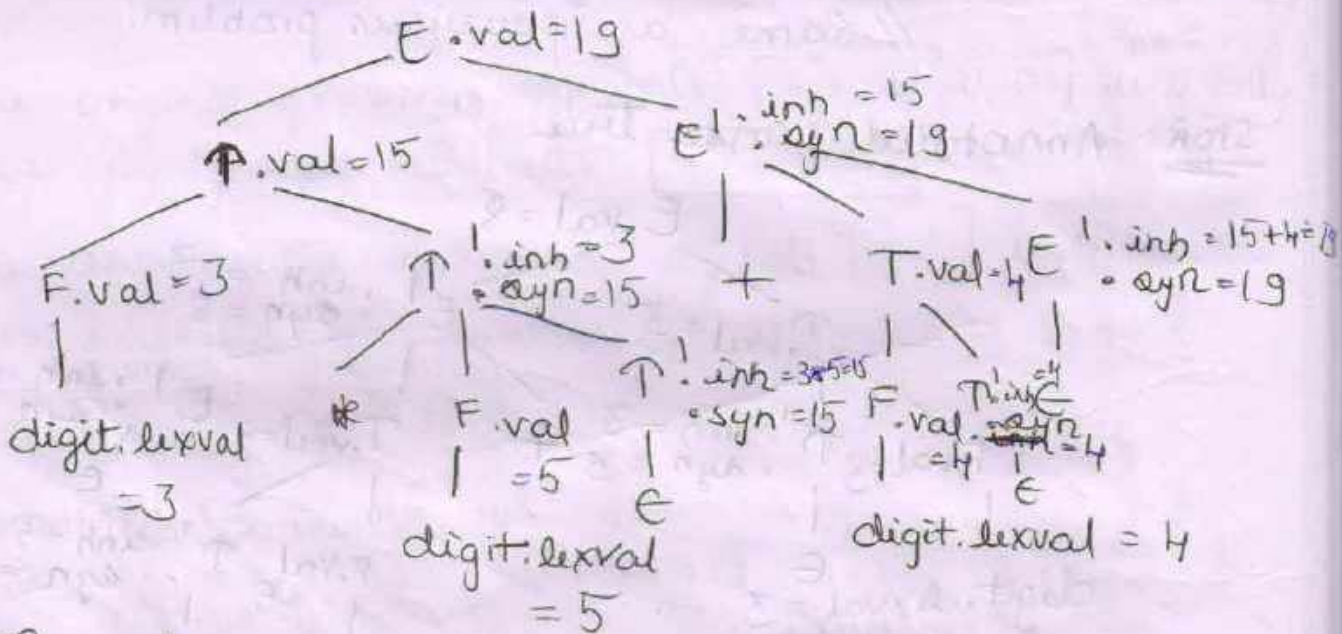 E.val=19
T.val=15 E'.inh=15
.syn=19
F.val=3 T'.inh=3
.syn=15 + T.val=4 E'.inh=15+4=19
.syn=19
digit.lexval
=3 * F.val
=5 T'.inh=3*5=15
.syn=15 F.val
=4 T'.inh=4
.syn=4 ϵ
digit.lexval
=5 ϵ digit.lexval=4 ϵ